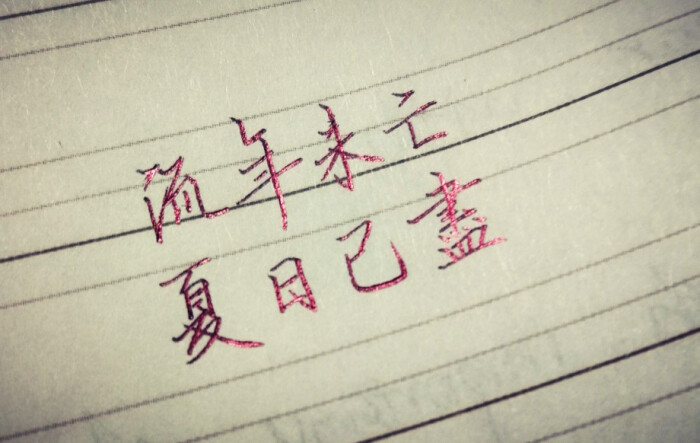 流年未亡
夏日已盡